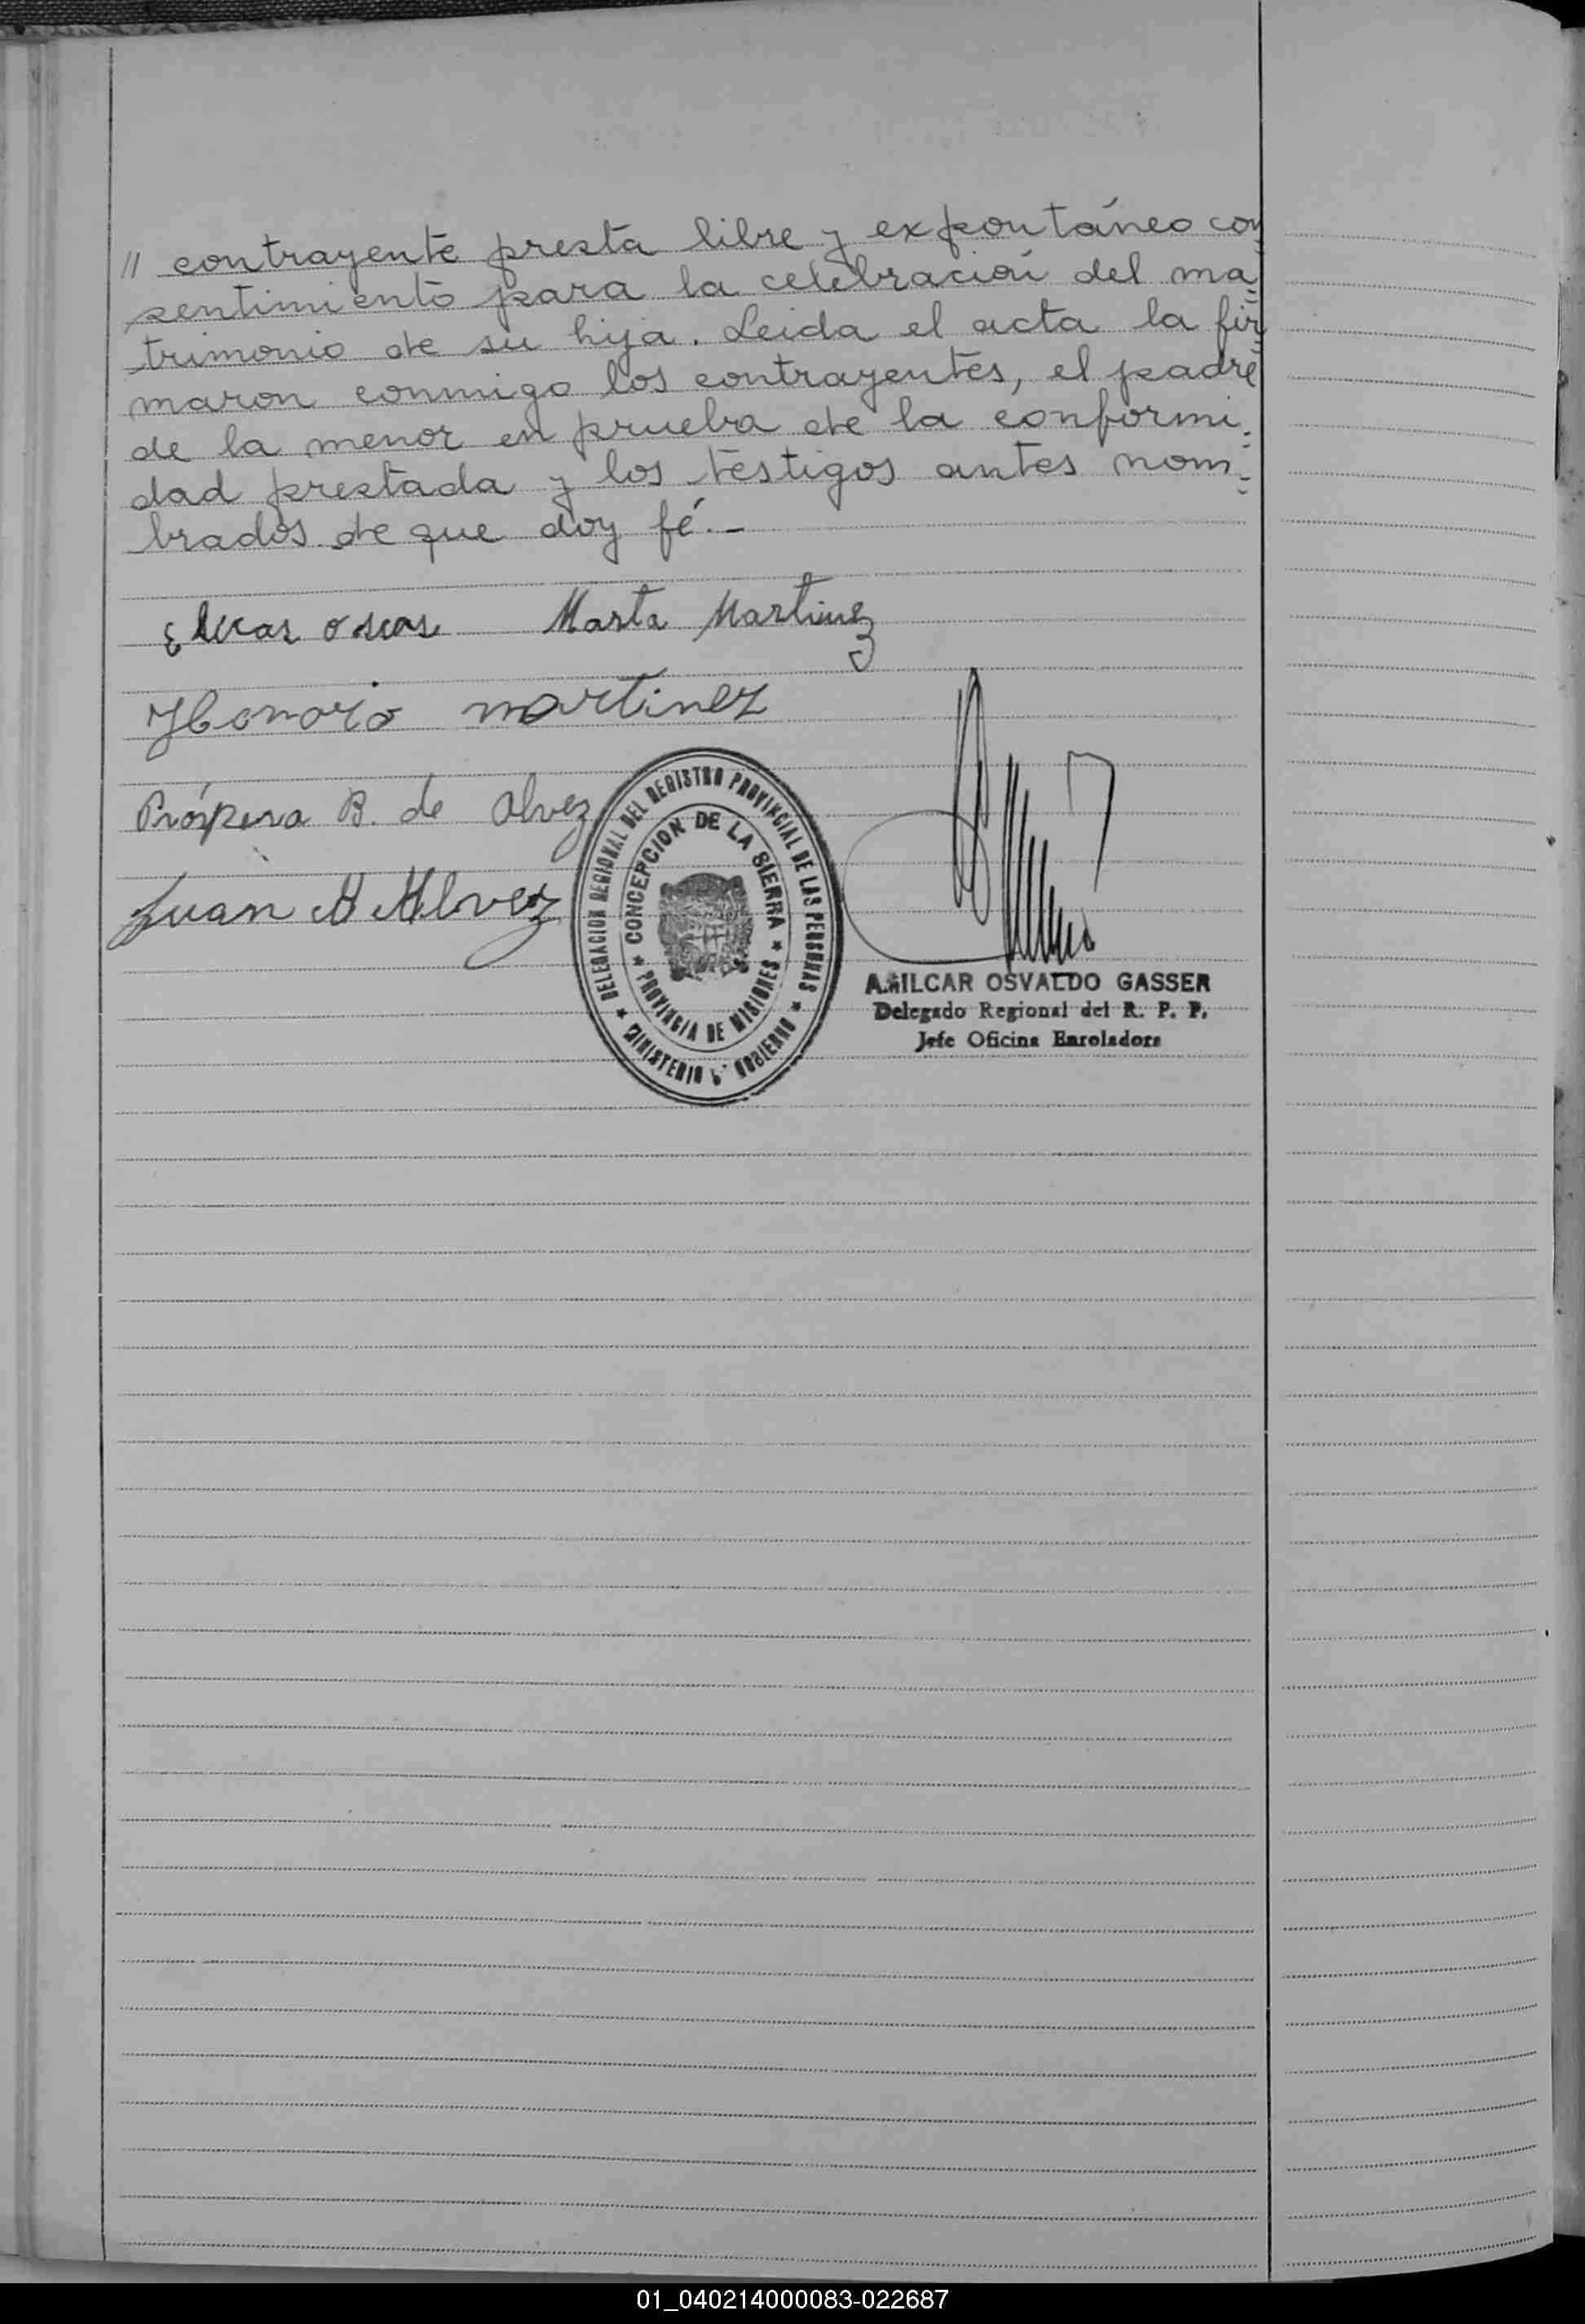 // contrayente presta libre y expontáneo con
sentimiento para la celebración del ma=
trimonio de su hija. Leida el acta la fir=
maron conmigo los contrayentes, el padre
de la menor en prueba de la conformi=
dad prestada y los testigos antes nom=
brados de que doy fé.-
Marta Martinez
Honorio martinez
Próspera B. de Alvez
Juan A Alvez
DELEGACION REGIONAL DEL REGISTRO PROVINCIAL DE LAS PERSONAS
* CONCEPCION DE LA SIERRA *
PROVINCIA DE MISIONES
* MINISTERIO GOBIERNO *
AMILCAR OSVALDO GASSER
Delegado Regional del R. P. P.
Jefe Oficina Enroladora
01_040214000083-022687